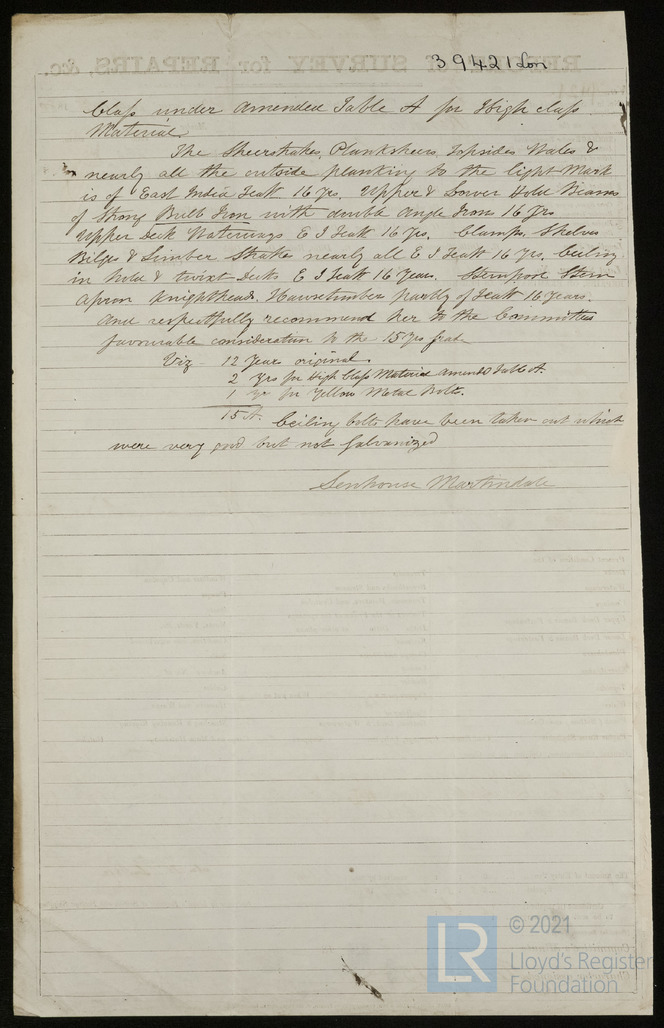 39421 Lon
Class under Amended Table A for High class
Material.
The Sheerstrakes, Planksheers, Topsides Wales &
nearly all the outside planking to the light Mark
is of East India Teak 16 Yrs. Upper & Lower Hold Beams
of Strong Bulb Iron with double Angle Irons 16 Yrs
Upper Deck Waterways E I Teak 16 Yrs. Clamps, Shelves
Bilges & Limber Strakes nearly all E I Teak 16 Yrs. Ceiling
in hold & twixt decks E I Teak 16 Years. Sternpost Stem
Apron Knightheads, Hawsetimbers partly of Teak 16 Years.
And respectfully recommend her to the Committees
favourable consideration to the 15 Yrs grade
Viz - 12 Years original
2 Yrs for High Class Material Amend Table A.
1 yr for Yellow Metal Bolts.
15 A. Ceiling bolts have been taken out which
were very good but not Galvanized
Senhouse Martindale
© 2021
LR
Lloyd's Register
Foundation